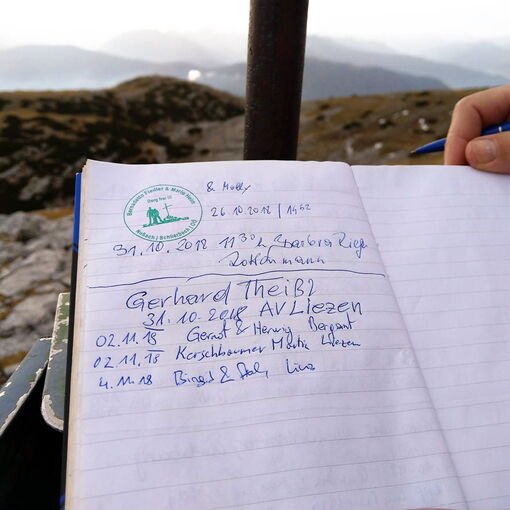 & Molly
Benedikta Fiedler & Mario Hein
Berg frei !!!
Roßbach | Schlierbach (O)
26.10.2018 | 1452
31.10.2018 1130h Barbara
Rottenmann
Gerhard Theißl
31.10.2018 AV Liezen
02.11.18 Gernot & Henny
02.11.18 Kerschbaumer Martin Liezen
4.11.18 Birgit & Linz